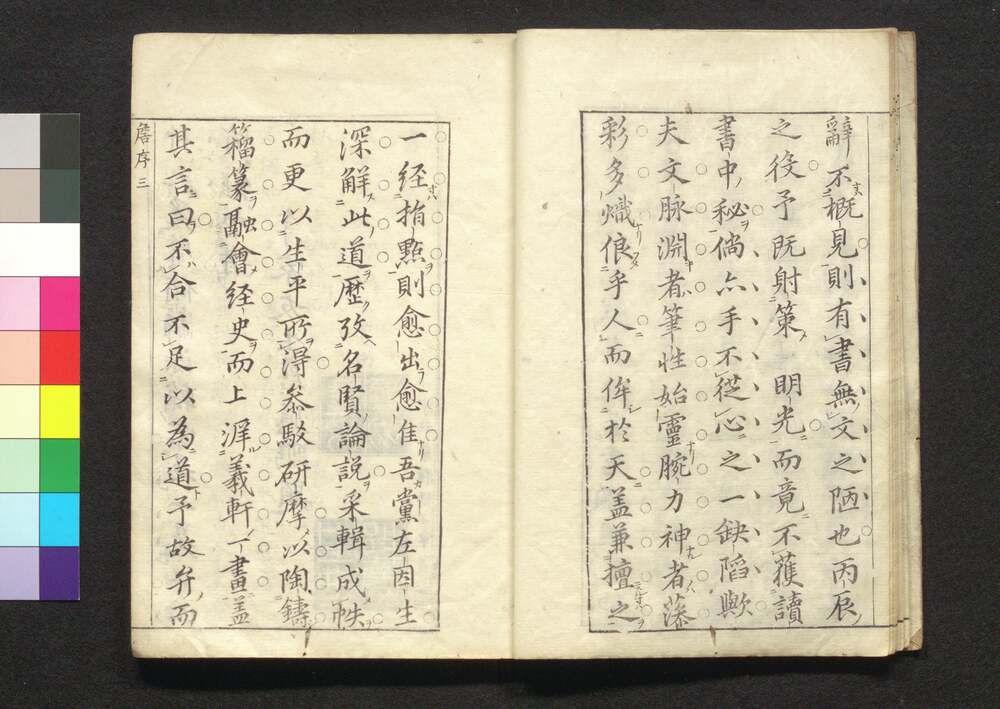 辭不概見則有書無文之陋也丙辰
之役予既射策明光而竟不獲讀
書中秘倘亦手不從心之一缺陷歟
夫文脉淵者筆性始靈腕力神者藻
彩多熾俍乎人而侔於天盖兼擅之
一経指點則愈出愈佳吾黨左因生
深解此道歴攷名賢論説采輯成帙
而更以生平所得叅駁研摩以陶鑄
籀篆融會経史而上遅羲軒一畫盖
其言曰不合不足以為道予故弁而
詹序 三